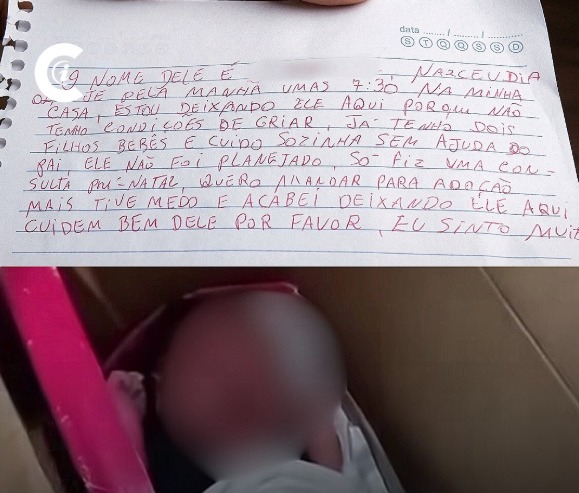 data ......../......../........
S T Q Q S S D
O NOME DELE É NASCEU DIA
PELA MANHÃ UMAS 7:30 NA MINHA
CASA, ESTOU DEIXANDO ELE AQUI PORQUE NÃO
TENHO CONDIÇÕES DE CRIAR, JÁ TENHO DOIS
FILHOS BEBÊS E CUIDO SOZINHA SEM AJUDA DO
PAI, ELE NÃO FOI PLANEJADO, SÓ FIZ UMA CON-
SULTA PRÉ-NATAL, QUERO PARA ADOÇÃO
MAIS TIVE MEDO E ACABEI DEIXANDO ELE AQUI,
CUIDEM BEM DELE POR FAVOR, EU SINTO MUIT